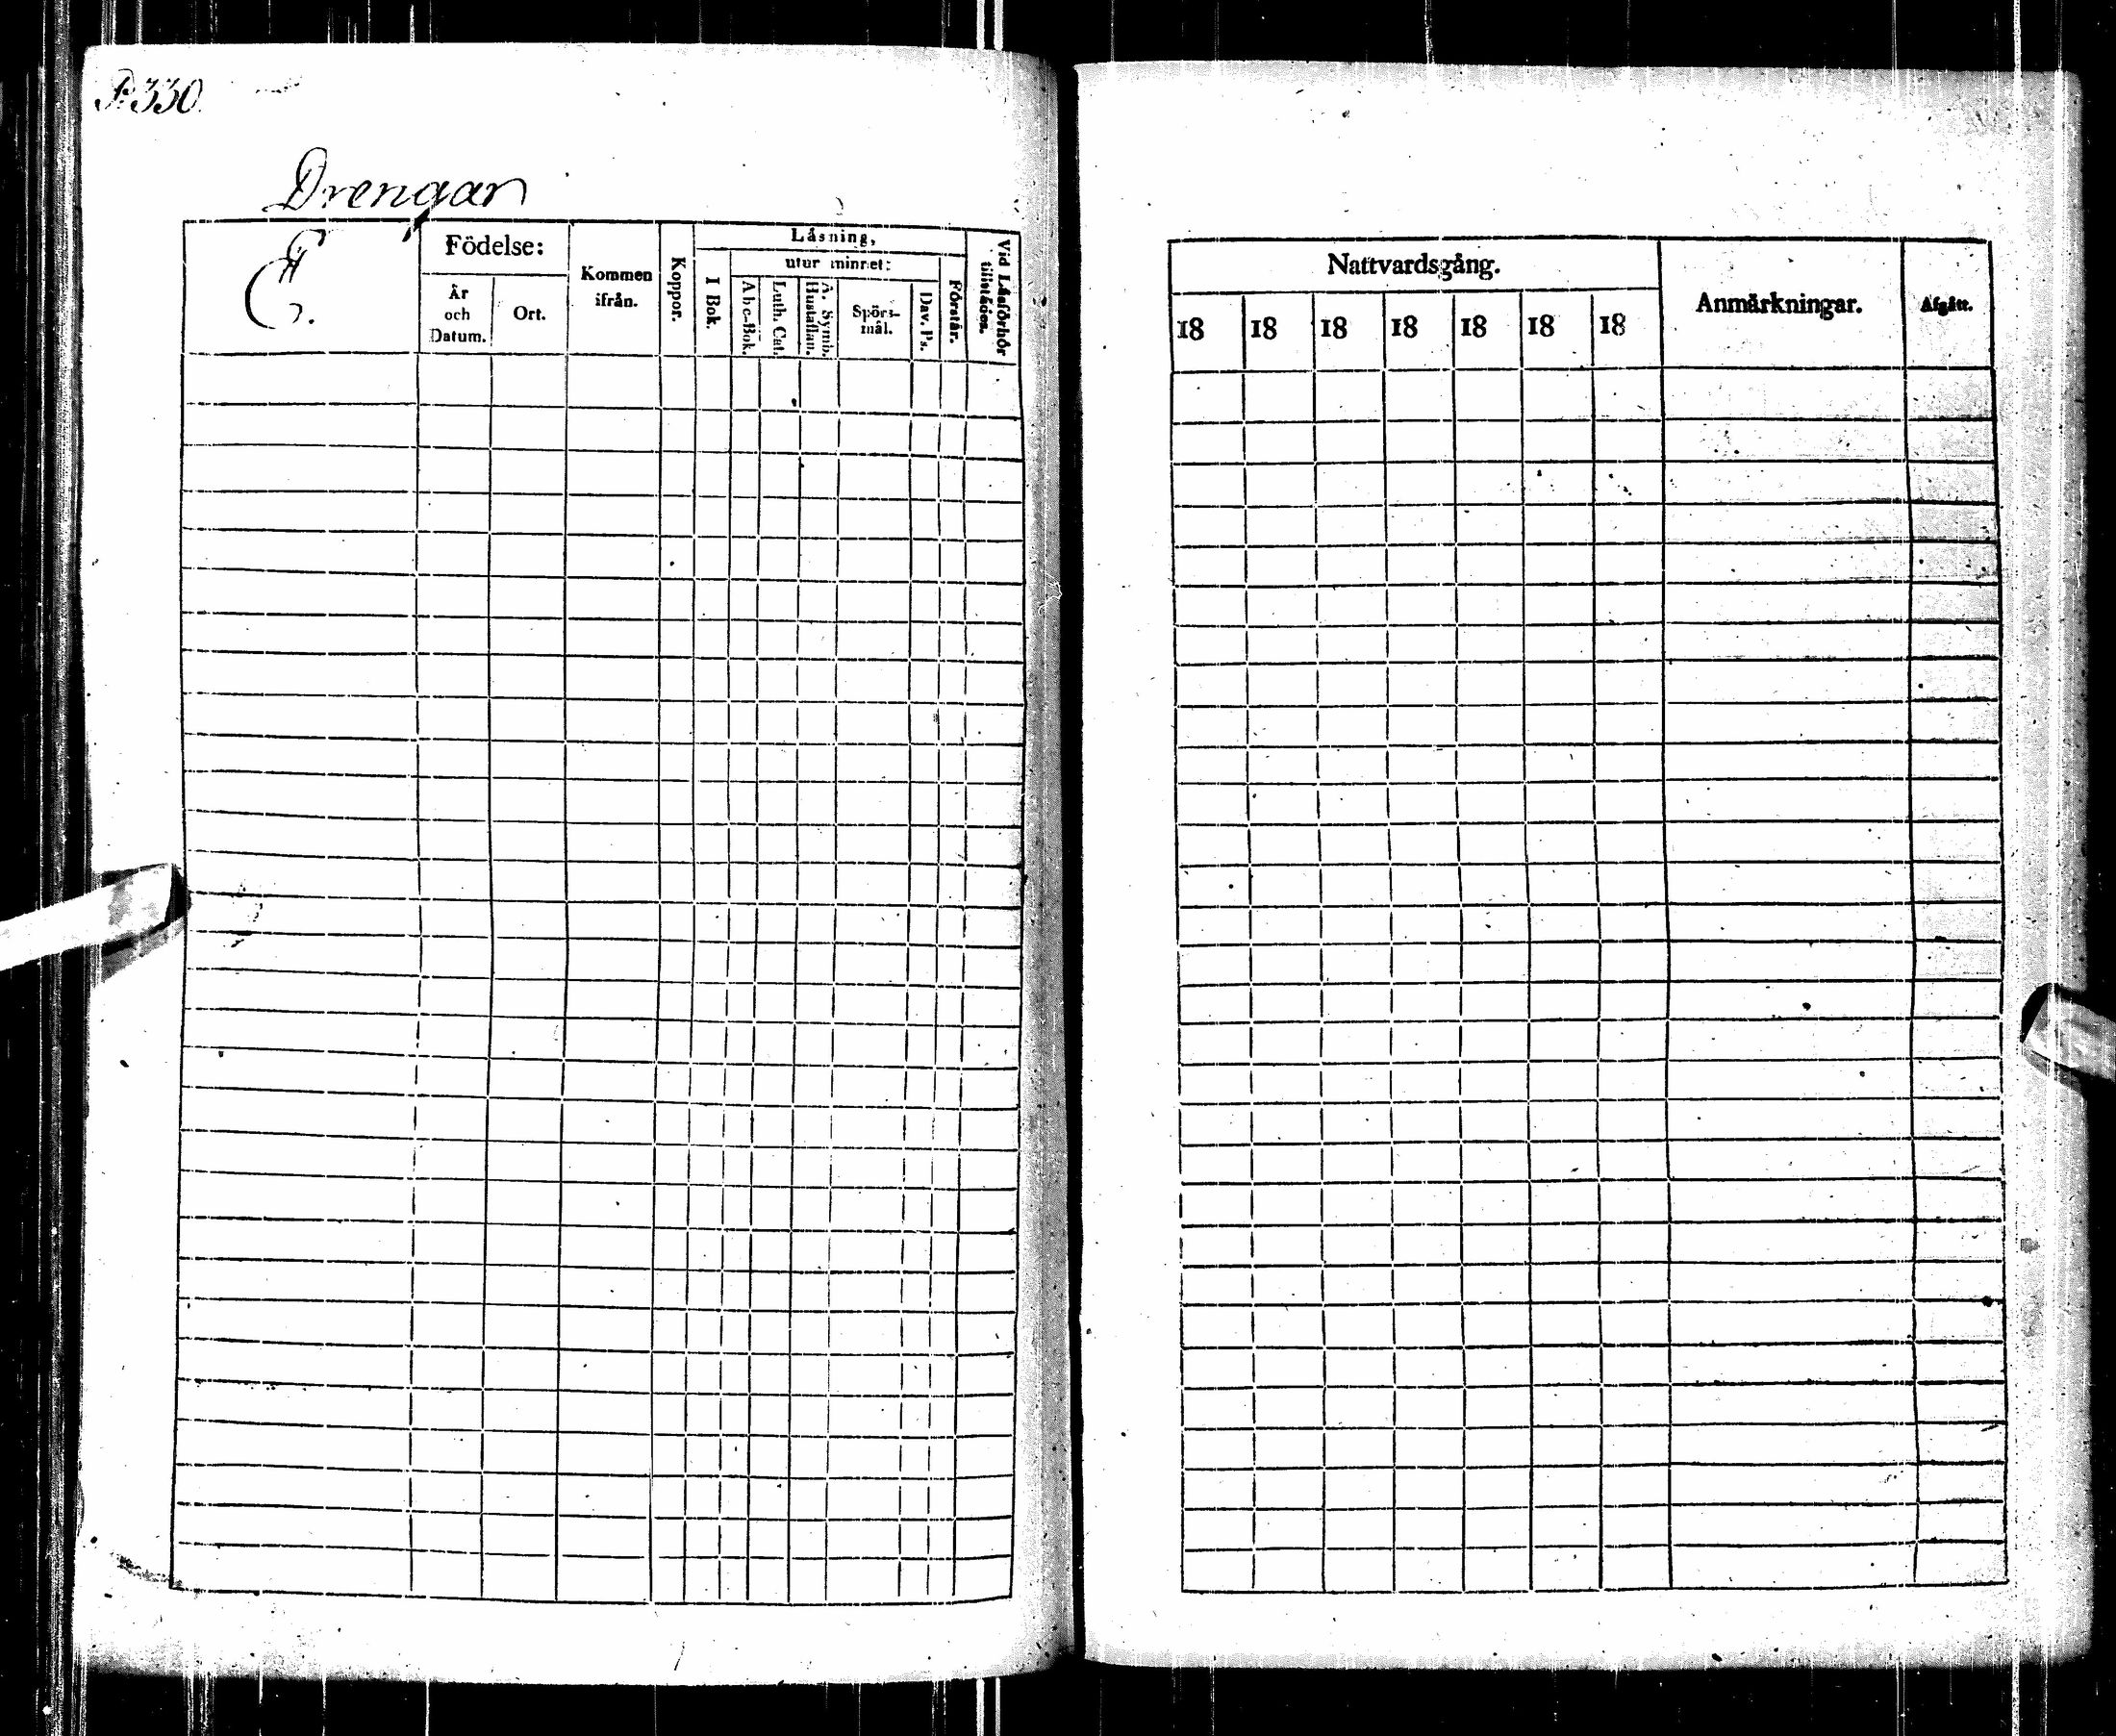 P. 330.
Drengar
E.
Födelse:
År och Datum.
Ort.
Kommen ifrån.
Koppor.
Läsning,
I Bok.
utur minnet:
Abc-Bok.
Luth. Cat.
A. Symb. Hustaflan.
Spörsmål.
Dav. Ps.
Förstår.
Vid Läsförhör tillstädes.
Nattvardsgång.
18 18 18 18 18 18 18
Anmärkningar.
Afgått.